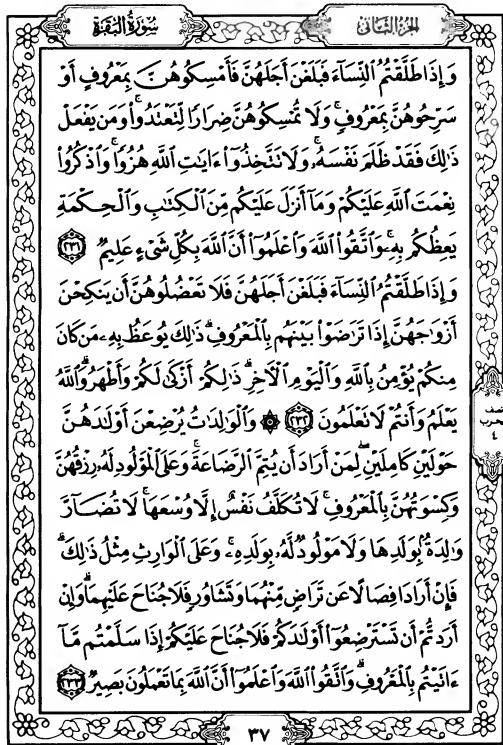 سُورَةُ البَقَرَةِ
الجزء الثاني
وَإِذَا طَلَّقْتُمُ ٱلنِّسَآءَ فَبَلَغْنَ أَجَلَهُنَّ فَأَمْسِكُوهُنَّ بِمَعْرُوفٍ أَوْ
سَرِّحُوهُنَّ بِمَعْرُوفٍ ۚ وَلَا تُمْسِكُوهُنَّ ضِرَارًا لِّتَعْتَدُوا۟ ۚ وَمَن يَفْعَلْ
ذَٰلِكَ فَقَدْ ظَلَمَ نَفْسَهُۥ ۚ وَلَا تَتَّخِذُوٓا۟ ءَايَٰتِ ٱللَّهِ هُزُوًا ۚ وَٱذْكُرُوا۟
نِعْمَتَ ٱللَّهِ عَلَيْكُمْ وَمَآ أَنزَلَ عَلَيْكُم مِّنَ ٱلْكِتَٰبِ وَٱلْحِكْمَةِ
يَعِظُكُم بِهِۦ ۚ وَٱتَّقُوا۟ ٱللَّهَ وَٱعْلَمُوٓا۟ أَنَّ ٱللَّهَ بِكُلِّ شَىْءٍ عَلِيمٌ ٢٣١
وَإِذَا طَلَّقْتُمُ ٱلنِّسَآءَ فَبَلَغْنَ أَجَلَهُنَّ فَلَا تَعْضُلُوهُنَّ أَن يَنكِحْنَ
أَزْوَٰجَهُنَّ إِذَا تَرَٰضَوْا۟ بَيْنَهُم بِٱلْمَعْرُوفِ ۗ ذَٰلِكَ يُوعَظُ بِهِۦ مَن كَانَ
مِنكُمْ يُؤْمِنُ بِٱللَّهِ وَٱلْيَوْمِ ٱلْءَاخِرِ ۗ ذَٰلِكُمْ أَزْكَىٰ لَكُمْ وَأَطْهَرُ ۗ وَٱللَّهُ
يَعْلَمُ وَأَنتُمْ لَا تَعْلَمُونَ ٢٣٢ ۞ وَٱلْوَٰلِدَٰتُ يُرْضِعْنَ أَوْلَٰدَهُنَّ
حَوْلَيْنِ كَامِلَيْنِ ۖ لِمَنْ أَرَادَ أَن يُتِمَّ ٱلرَّضَاعَةَ ۚ وَعَلَى ٱلْمَوْلُودِ لَهُۥ رِزْقُهُنَّ
وَكِسْوَتُهُنَّ بِٱلْمَعْرُوفِ ۚ لَا تُكَلَّفُ نَفْسٌ إِلَّا وُسْعَهَا ۚ لَا تُضَآرَّ
وَٰلِدَةٌۢ بِوَلَدِهَا وَلَا مَوْلُودٌ لَّهُۥ بِوَلَدِهِۦ ۚ وَعَلَى ٱلْوَارِثِ مِثْلُ ذَٰلِكَ ۗ
فَإِنْ أَرَادَا فِصَالًا عَن تَرَاضٍ مِّنْهُمَا وَتَشَاوُرٍ فَلَا جُنَاحَ عَلَيْهِمَا ۗ وَإِنْ
أَرَدتُّمْ أَن تَسْتَرْضِعُوٓا۟ أَوْلَٰدَكُمْ فَلَا جُنَاحَ عَلَيْكُمْ إِذَا سَلَّمْتُم مَّآ
ءَاتَيْتُم بِٱلْمَعْرُوفِ ۗ وَٱتَّقُوا۟ ٱللَّهَ وَٱعْلَمُوٓا۟ أَنَّ ٱللَّهَ بِمَا تَعْمَلُونَ بَصِيرٌ ٢٣٣
٣٧